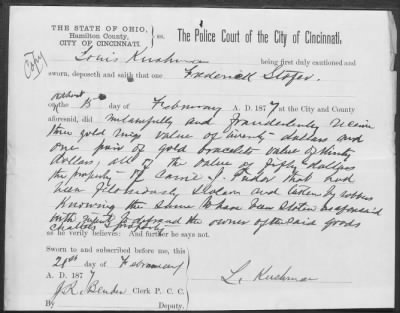 THE STATE OF OHIO,
Hamilton County, } ss.
CITY OF CINCINNATI.
The Police Court of the City of Cincinnati.
Copy
Louis Kushman being first duly cautioned and
sworn, deposeth and saith that one Frederick Stofer
about
on the 15 day of February A. D. 1877 at the City and County
aforesaid, did unlawfully and fraudulently receive
three gold rings value of twenty dollars and
one pair of gold bracelets value of thirty
dollars, all of the value of fifty dollars
the property of Carrie J. that had
been feloniously stolen and taken by robbers
Knowing the same to have been stolen as aforesaid
with intent to defraud the owner of the said goods
chattels & property
as he verily believes: And further he says not.
Sworn to and subscribed before me, this
28th day of February
A. D. 1877
J. R. Bender Clerk P. C. C.
By Deputy.
L. Kushman